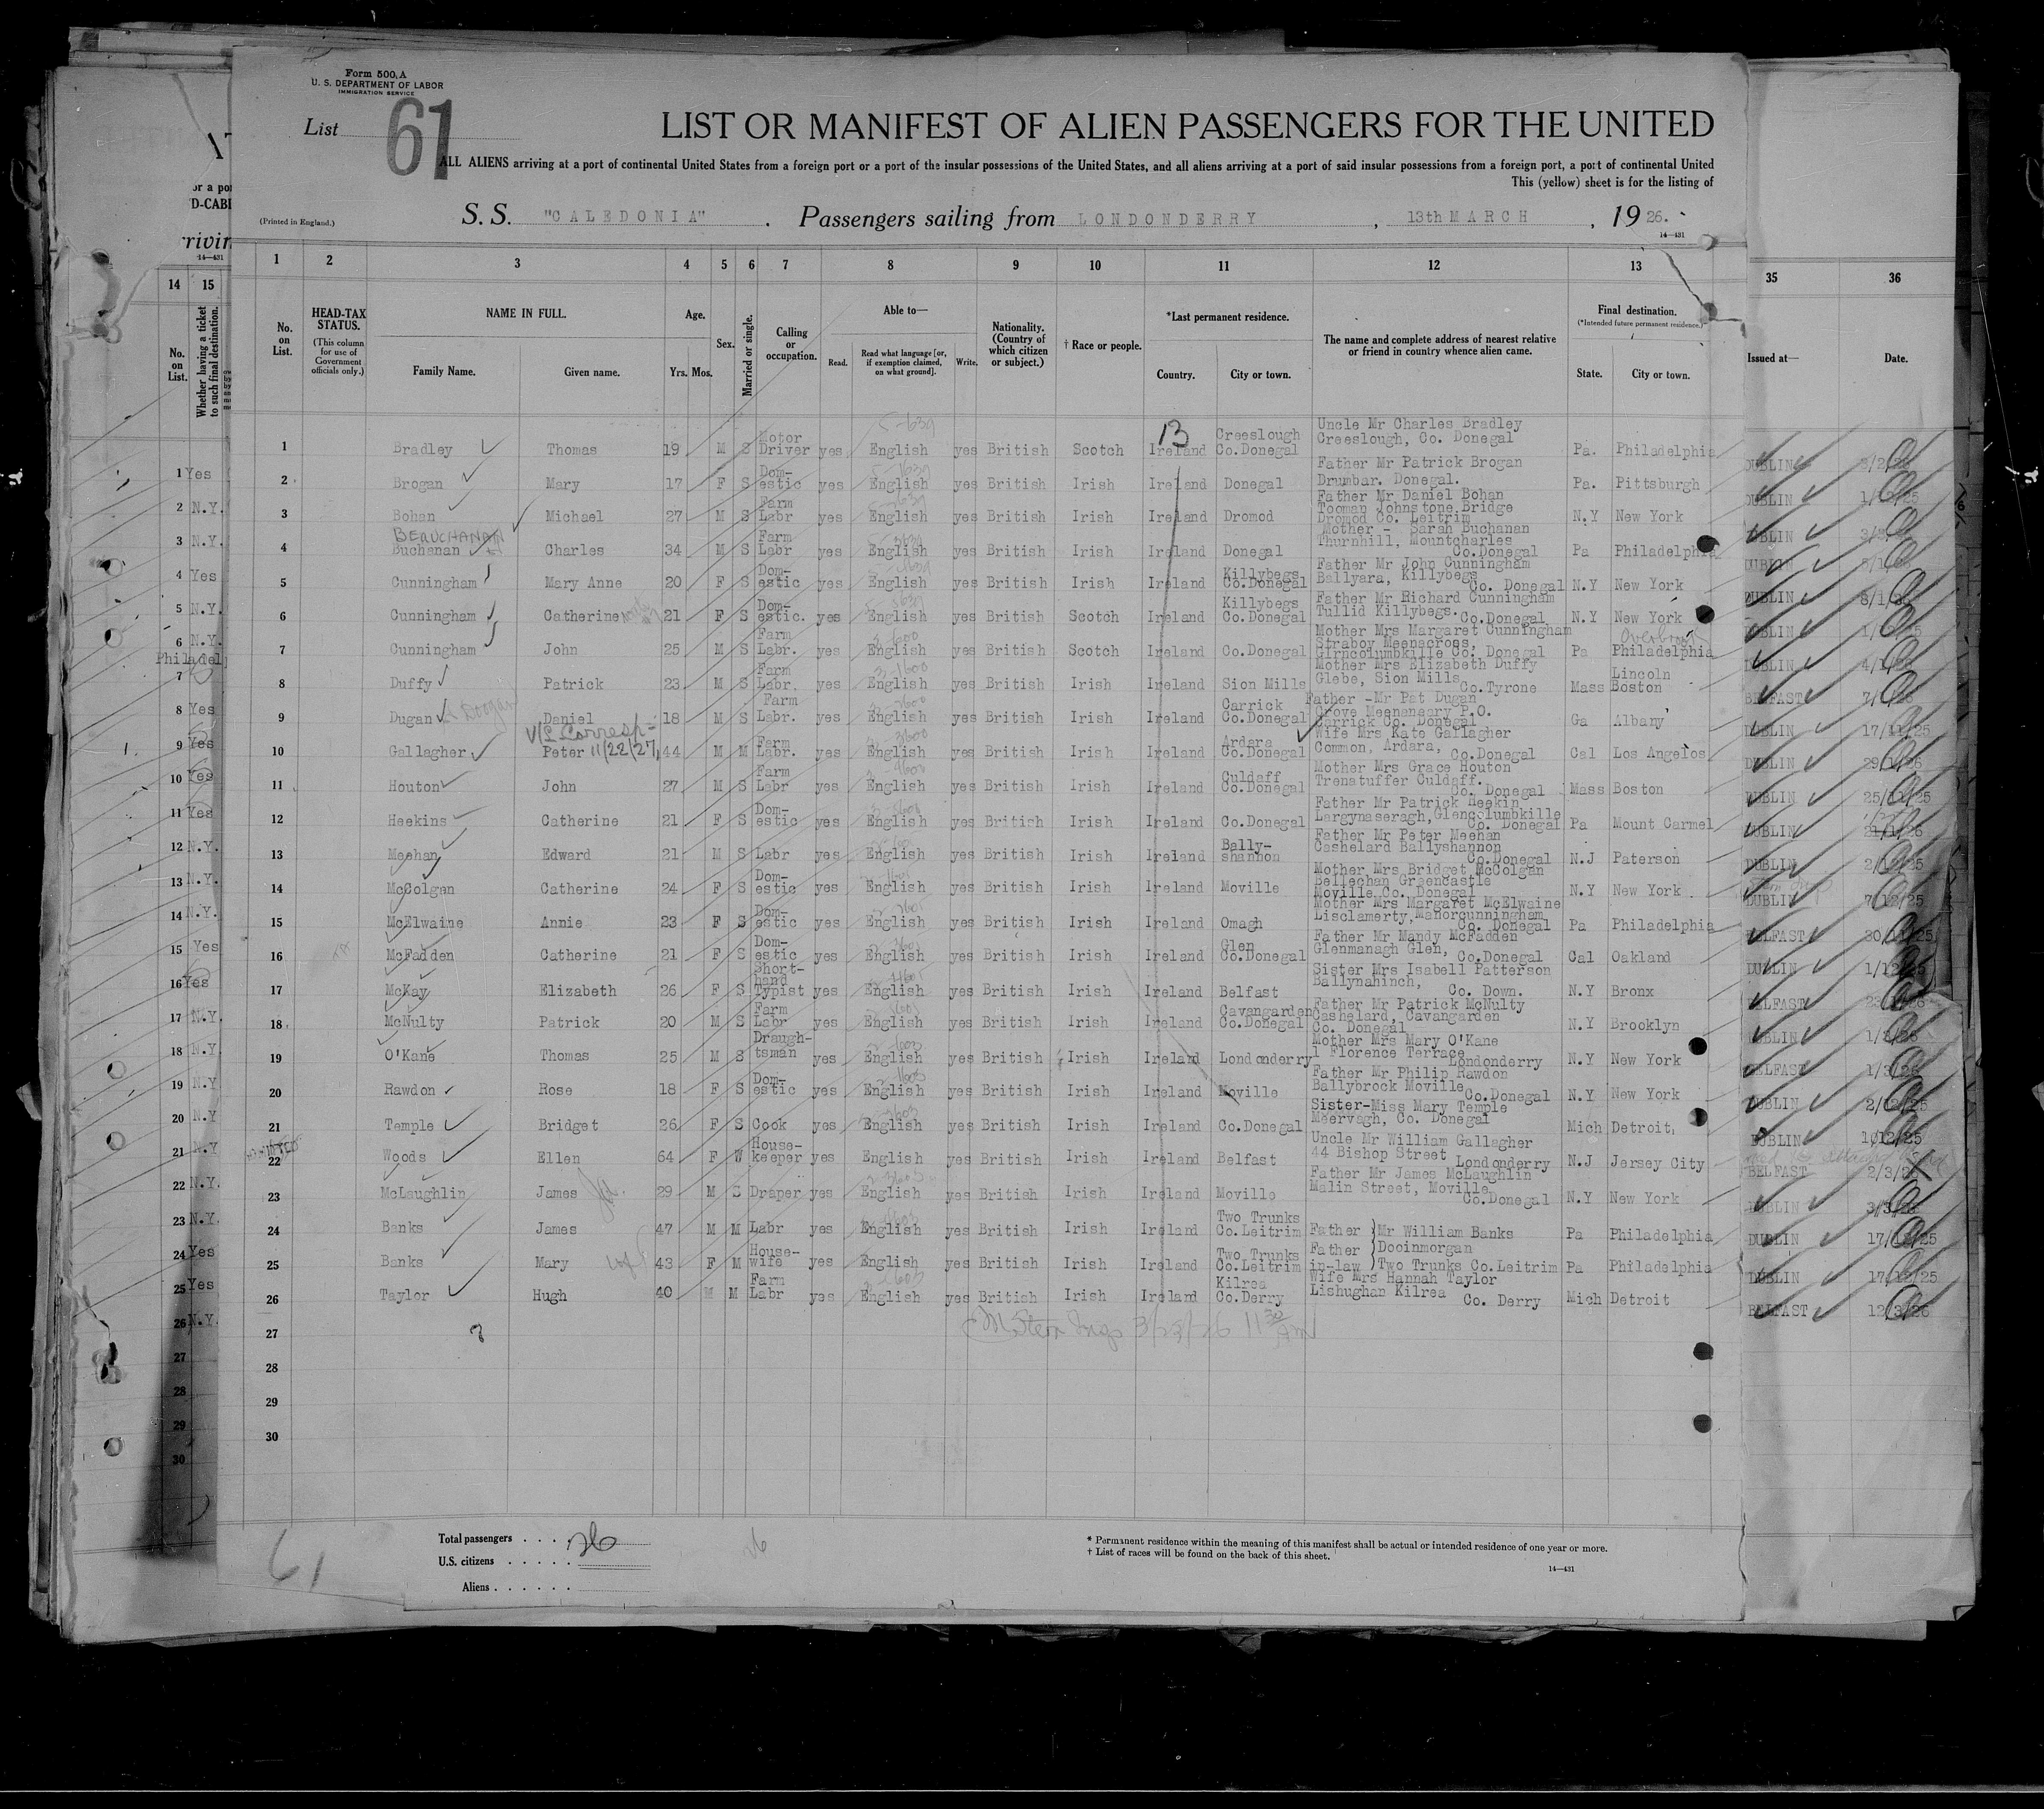 Form 500 A
U. S. DEPARTMENT OF LABOR
IMMIGRATION SERVICE
List 61
LIST OR MANIFEST OF ALIEN PASSENGERS FOR THE UNITED
ALL ALIENS arriving at a port of continental United States from a foreign port or a port of the insular possessions of the United States, and all aliens arriving at a port of said insular possessions from a foreign port, a port of continental United
This (yellow) sheet is for the listing of
(Printed in England.)
S. S. "CALEDONIA". Passengers sailing from LONDONDERRY, 13th MARCH, 1926.
14—431
1 2 3 4 5 6 7 8 9 10 11 12 13
14 15 35 36
No. on List.
HEAD-TAX STATUS. (This column for use of Government officials only.)
NAME IN FULL. Family Name. Given name.
Age. Yrs. Mos.
Sex.
Married or single.
Calling or occupation.
Able to— Read. Read what language [or, if exemption claimed, on what ground]. Write.
Nationality. (Country of which citizen or subject.)
† Race or people.
*Last permanent residence. Country. City or town.
The name and complete address of nearest relative or friend in country whence alien came.
Final destination. (*Intended future permanent residence.) State. City or town.
No. on List. Whether having a ticket to such final destination.
Issued at— Date.
13
1 Bradley Thomas 19 M S Motor Driver yes English yes British Scotch Ireland Creeslough Co.Donegal Uncle Mr Charles Bradley Creeslough, Co. Donegal Pa. Philadelphia
2 Brogan Mary 17 F S Dom-estic yes English yes British Irish Ireland Donegal Father Mr Patrick Brogan Drumbar. Donegal. Pa. Pittsburgh
3 Bohan Michael 27 M S Farm Labr yes English yes British Irish Ireland Dromod Father Mr Daniel Bohan Tooman Johnstone Bridge Dromod Co. Leitrim N.Y New York
BEAUCHANAN
4 Buchanan Charles 34 M S Farm Labr yes English yes British Irish Ireland Donegal Mother - Sarah Buchanan Thurnhill, Mountcharles Co.Donegal Pa Philadelphia
5 Cunningham Mary Anne 20 F S Dom-estic yes English yes British Irish Ireland Killybegs Co.Donegal Father Mr John Cunningham Ballyara, Killybegs Co. Donegal N.Y New York
6 Cunningham Catherine 21 F S Dom-estic. yes English yes British Scotch Ireland Killybegs Co.Donegal Father Mr Richard Cunningham Tullid Killybegs. Co.Donegal N.Y New York
7 Cunningham John 25 M S Farm Labr. yes English yes British Scotch Ireland Co.Donegal Mother Mrs Margaret Cunningham Straboy Meenacross, Glencolumbkille Co. Donegal Pa Overbrook Philadelphia
8 Duffy Patrick 23 M S Farm Labr. yes English yes British Irish Ireland Sion Mills Mother Mrs Elizabeth Duffy Glebe, Sion Mills Co.Tyrone Mass Lincoln Boston
9 Dugan Doogan Daniel 18 M S Farm Labr. yes English yes British Irish Ireland Carrick Co.Donegal Father -Mr Pat Dugan Crove Meenaneary P.O. Carrick Co. Donegal Ga Albany
V/L Corresp- 11/22/27
10 Gallagher Peter 44 M M Farm Labr. yes English yes British Irish Ireland Ardara Co.Donegal Wife Mrs Kate Gallagher Common, Ardara, Co.Donegal Cal Los Angelos
11 Houton John 27 M S Farm Labr yes English yes British Irish Ireland Culdaff Co.Donegal Mother Mrs Grace Houton Trenstuffer Culdaff. Co. Donegal Mass Boston
12 Heekins Catherine 21 F S Dom-estic yes English yes British Irish Ireland Co.Donegal Father Mr Patrick Heekin Largynaseragh, Glencolumbkille Co. Donegal Pa Mount Carmel
13 Meehan Edward 21 M S Labr yes English yes British Irish Ireland Bally-shannon Father Mr Peter Meehan Cashelard Ballyshannon Co.Donegal N.J Paterson
14 McColgan Catherine 24 F S Dom-estic yes English yes British Irish Ireland Moville Mother Mrs Bridget McColgan Bellechan Greencastle Moville Co. Donegal N.Y New York
15 McElwaine Annie 23 F S Dom-estic yes English yes British Irish Ireland Omagh Mother Mrs Margaret McElwaine Lisclamerty, Manorcunningham Co. Donegal Pa Philadelphia
16 McFadden Catherine 21 F S Dom-estic yes English yes British Irish Ireland Glen Co.Donegal Father Mr Mandy McFadden Glenmanagh Glen, Co.Donegal Cal Oakland
17 McKay Elizabeth 26 F S Short-hand Typist yes English yes British Irish Ireland Belfast Sister Mrs Isabell Patterson Ballynahinch, Co. Down. N.Y Bronx
18 McNulty Patrick 20 M S Farm Labr yes English yes British Irish Ireland Cavangarden Co.Donegal Father Mr Patrick McNulty Cashelard, Cavangarden Co. Donegal N.Y Brooklyn
19 O'Kane Thomas 25 M S Draugh-tsman yes English yes British Irish Ireland Londonderry Mother Mrs Mary O'Kane 1 Florence Terrace Londonderry N.Y New York
20 Rawdon Rose 18 F S Dom-estic yes English yes British Irish Ireland Moville Father Mr Philip Rawdon Ballybrock Moville Co.Donegal N.Y New York
21 Temple Bridget 26 F S Cook yes English yes British Irish Ireland Co.Donegal Sister-Miss Mary Temple Meervagh, Co. Donegal Mich Detroit
22 Woods Ellen 64 F W House-keeper yes English yes British Irish Ireland Belfast Uncle Mr William Gallagher 44 Bishop Street Londonderry N.J Jersey City
23 McLaughlin James 29 M S Draper yes English yes British Irish Ireland Moville Father Mr James McLaughlin Malin Street, Moville Co.Donegal N.Y New York
24 Banks James 47 M M Labr yes English yes British Irish Ireland Two Trunks Co.Leitrim Father Mr William Banks Pa Philadelphia
25 Banks Mary wife 43 F M House-wife yes English yes British Irish Ireland Two Trunks Co.Leitrim Father in-law Dooinmorgan Two Trunks Co.Leitrim Pa Philadelphia
26 Taylor Hugh 40 M M Farm Labr yes English yes British Irish Ireland Kilrea Co.Derry Wife Mrs Hannah Taylor Lishughan Kilrea Co. Derry Mich Detroit
27
28
29
30
Total passengers . . . . 26
U.S. citizens . . . . .
Aliens . . . . . .
26
61
* Permanent residence within the meaning of this manifest shall be actual or intended residence of one year or more.
† List of races will be found on the back of this sheet.
14—431